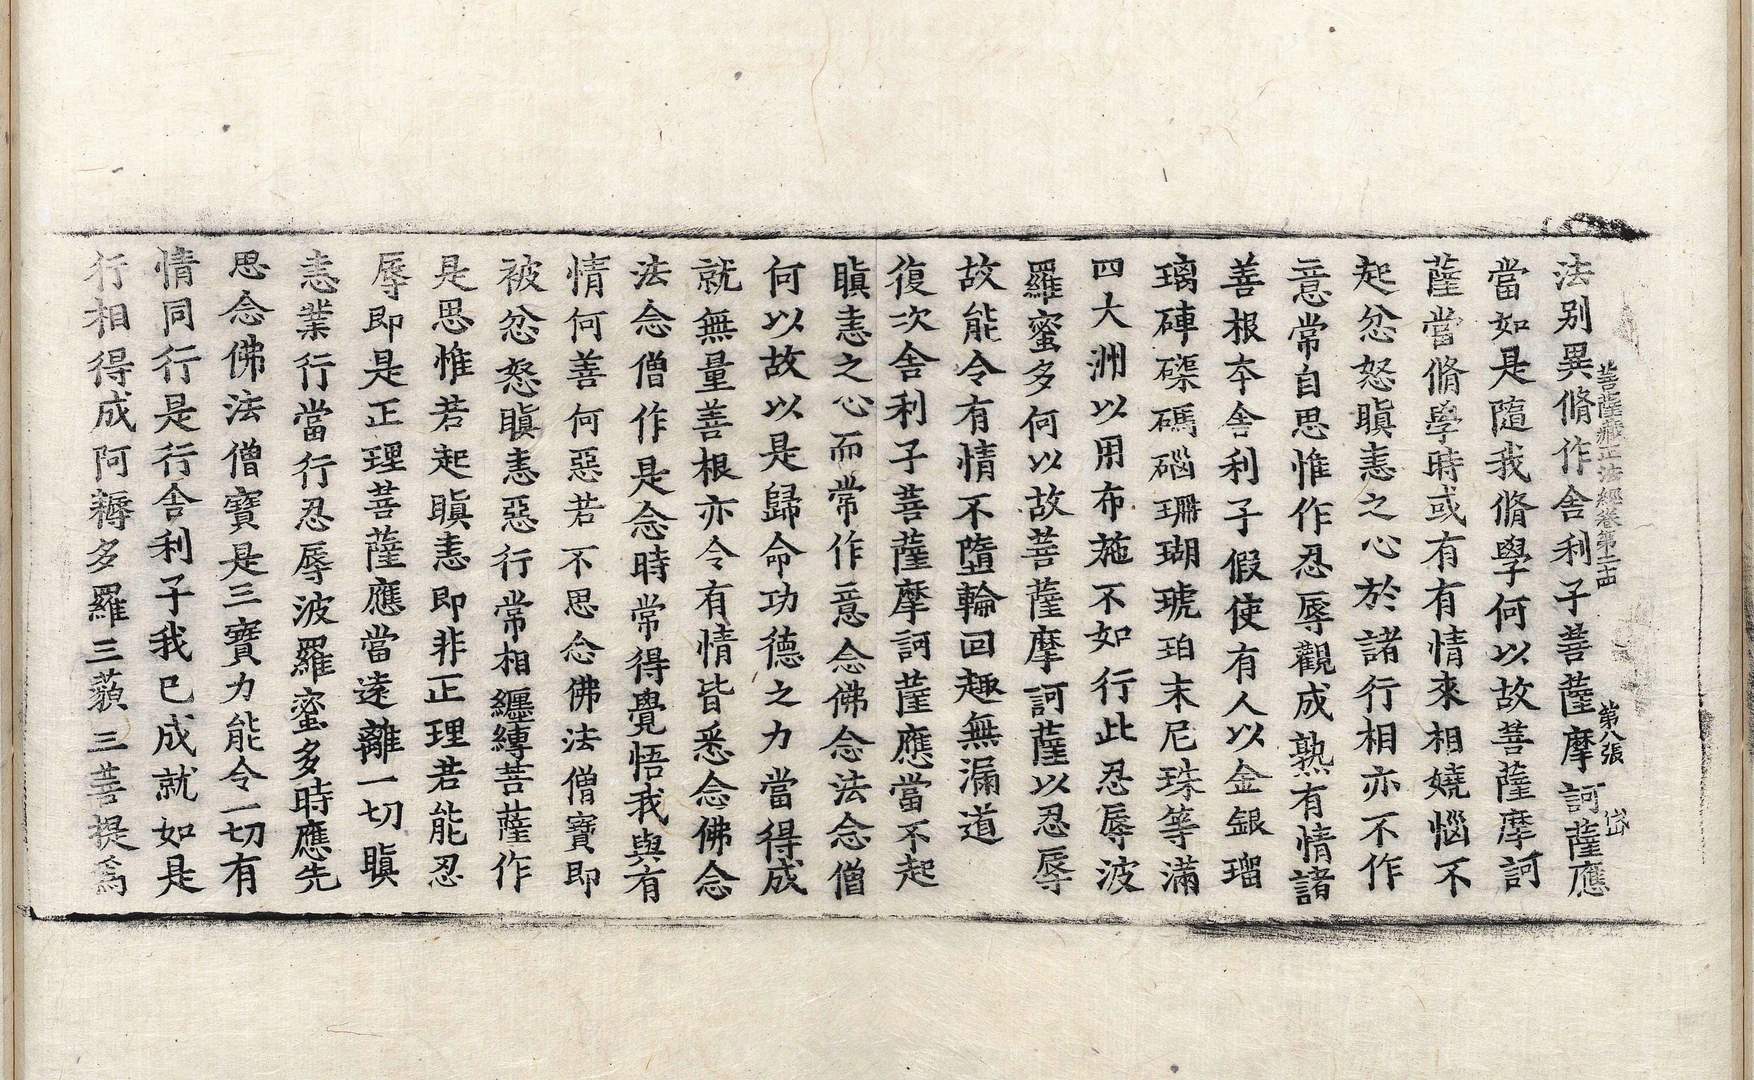 菩薩藏正法經卷第二十四 第八張 岱
法别異脩作舍利子菩薩摩訶薩應
當如是隨我脩學何以故菩薩摩訶
薩當脩學時或有有情來相嬈惱不
起忿怒瞋恚之心於諸行相亦不作
意常自思惟作忍辱觀成熟有情諸
善根本舍利子假使有人以金銀瑠
璃硨磲碼碯珊瑚琥珀末尼珠等滿
四大洲以用布施不如行此忍辱波
羅蜜多何以故菩薩摩訶薩以忍辱
故能令有情不墮輪回趣無漏道
復次舍利子菩薩摩訶薩應當不起
瞋恚之心而常作意念佛念法念僧
何以故以是歸命功德之力當得成
就無量善根亦令有情皆悉念佛念
法念僧作是念時常得覺悟我與有
情何善何惡若不思念佛法僧寶即
被忿怒瞋恚惡行常相纏縛菩薩作
是思惟若起瞋恚即非正理若能忍
辱即是正理菩薩應當遠離一切瞋
恚業行當行忍辱波羅蜜多時應先
思念佛法僧寶是三寶力能令一切有
情同行是行舍利子我已成就如是
行相得成阿耨多羅三藐三菩提爲